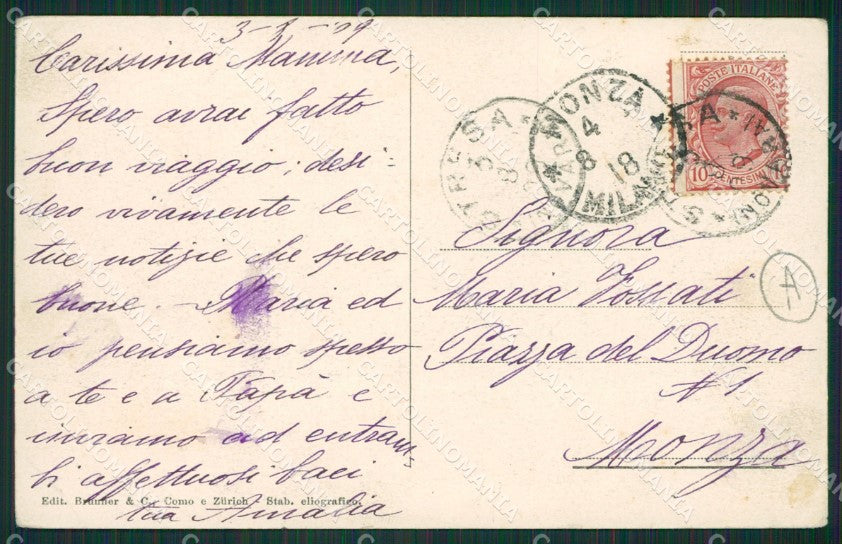 3-8-'09
Carissima Mamma,
Spero avrai fatto
buon viaggio; desi-
dero vivamente le
tue notizie che spero
buone. - Maria ed
io pensiamo spesso
a te e a Papà e
inviamo ad entram-
bi affettuosi baci
tua Amalia
Edit. Brunner & C., Como e Zürich - Stab. eliografico.
STRESA
3
8
MONZA
4
8
18
MILANO
POSTE ITALIANE
10
CENTESIMI
Signora
Maria Fossati
Piazza del Duomo
N 1
Monza
A
CARTOLINOMANIA